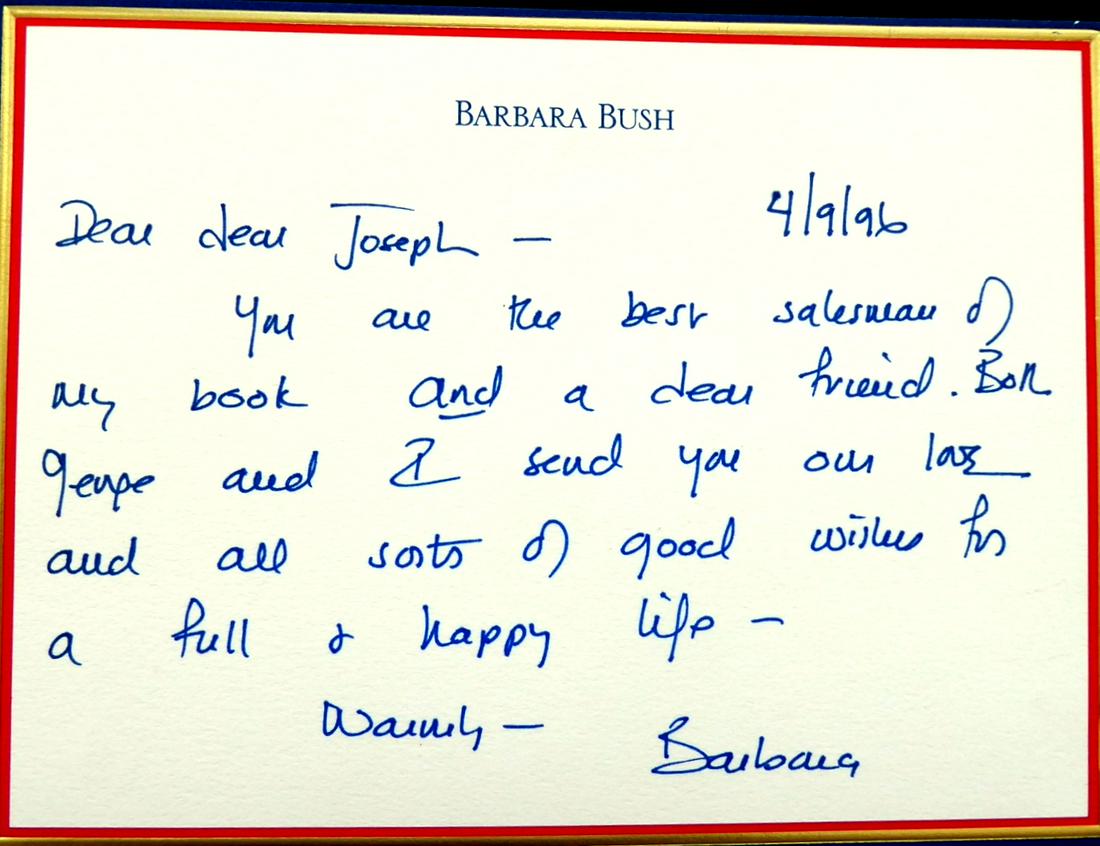 BARBARA BUSH
Dear dear Joseph — 4/9/96
You are the best salesman of
my book and a dear friend. Both
George and I send you our love
and all sorts of good wishes for
a full & happy life —
Warmly — Barbara